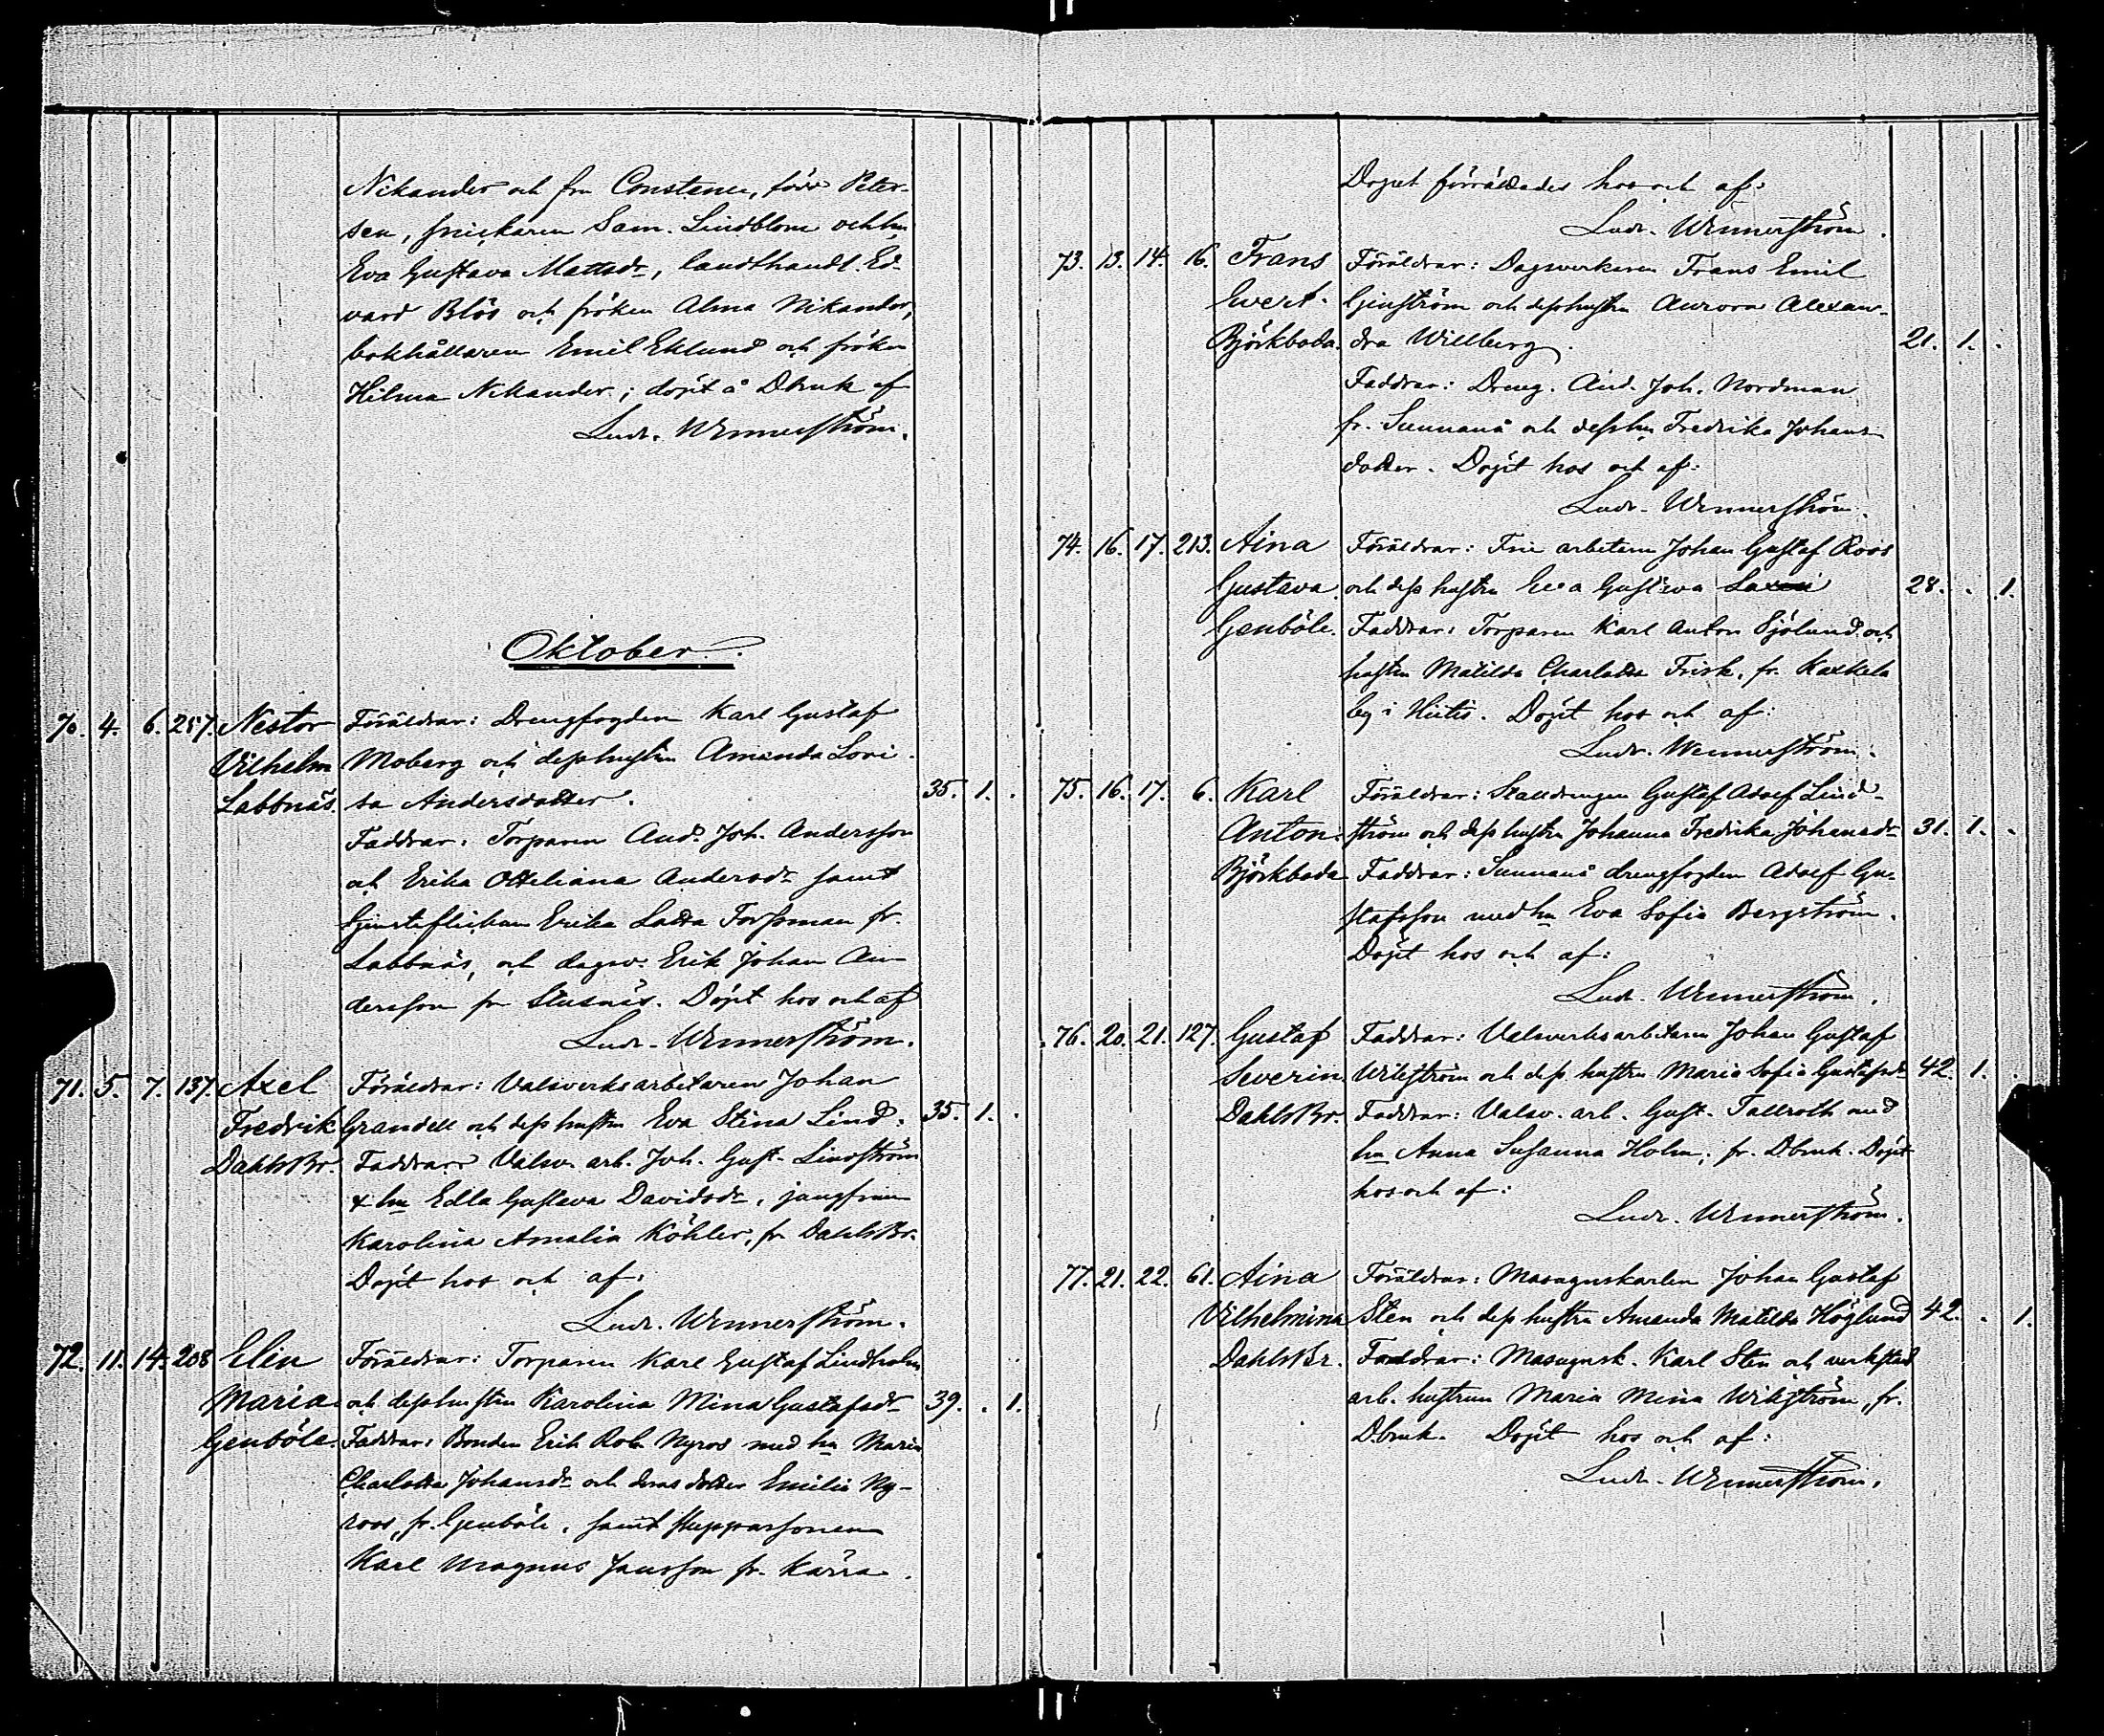 Nikander och fru Constance, född Peter-
sen, snickaren Sam. Lindblom och hu
Eva Gustava Mattsdr, landthandl. Ed-
vard Blös och fröken Alma Nikander,
bokhållaren Emil Eklund och fröken
Hilma Nikander; döpt å Dbruk af
Ludv. Wennerström.
Oktober.
70. 4. 6. 257. Nestor Föräldrar: Drengfogden Karl Gustaf
Vilhelm Moberg och dess hustru Amanda Lovi-
Labbnäs. sa Andersdotter. 35. 1. .
Faddrar: Torparen And. Joh. Andersson
och Erika Otteliana Andersdr samt
Erika Lotta Forssman fr.
Labbnäs, och dagsv. Erik Johan An-
dersson fr Stusnäs. Döpt hos och af
Ludv. Wennerström.
71. 5. 7. 137. Axel Föräldrar: Valsverksarbetaren Johan
Fredrik Grandell och dess hustru Eva Stina Lind. 35. 1. .
Dahls Br. Faddrar: Valsv. arb. Joh. Gust. Lindström
& hu Edla Gustava Davidsdr, jungfrun
Karolina Amalia Köhler, fr Dahls Br.
Döpt hos och af:
Ludv. Wennerström.
72. 11. 14. 208 Elin Föräldrar: Torparen Karl Gustaf Lindholm
Maria och dess hustru Karolina Mina Gustafsdr 39. . 1.
Genböle. Faddrar: Bonden Erik Rob. Nyroos med hu Maria
Charlotta Johansdr och deras dotter Emilia Ny-
roos, fr. Genböle, samt
Karl Magnus Jansson fr. Kärra.
Dopet förrättades hos och af:
Ludv. Wennerström.
73. 13. 14. 16. Frans Föräldrar: Dagsverkaren Frans Emil
Evert. och dess hustru Aurora Alexan-
Björkboda. dra Willberg. 21. 1. .
Faddrar: Dreng. And. Joh. Nordman
fr. Sunnanå och dess hu Fredrika Johans-
dotter. Döpt hos och af:
Ludv. Wennerström.
74. 16. 17. 213. Aina Föräldrar: Frie arbetaren Johan Gustaf Roos
Gustava och dess hustru Eva Gustava 28. . 1.
Genböle. Faddrar: Torparen Karl Anton Sjölund och
hustru Matilda Charlotta Frisk, fr.
by i Hiitis. Döpt hos och af:
Ludv. Wennerström.
75. 16. 17. 6. Karl Föräldrar: Stalldrengen Gustaf Adolf Lind-
Anton. ström och dess hustru Johanna Fredrika Johansdr 31. 1. .
Björkboda Faddrar: Sunnanå drengfogden Adolf Gu-
stafsson med hu Eva Sofia Bergström.
Döpt hos och af:
Ludv. Wennerström.
76. 20. 21. 127. Gustaf Faddrar: Valsverksarbetaren Johan Gustaf
Severin Wikström och dess hustru Maria Sofia Gustafsdr 42. 1. .
Dahls Br. Faddrar: Valsv. arb. Gust. Tallroth med
hu Anna Susanna Holm, fr. Dbruk. Döpt
hos och af:
Ludv. Wennerström.
77. 21. 22. 61. Aina Föräldrar: Masugnskarlen Johan Gustaf
Vilhelmina Sten och dess hustru Amanda Matilda Höglund 42. . 1.
Dahls Br. Faddrar: Masugnsk. Karl Sten och verkstad
arb. hustrun Maria Mina Wikström, fr.
Dbruk. Döpt hos och af:
Ludv. Wennerström.